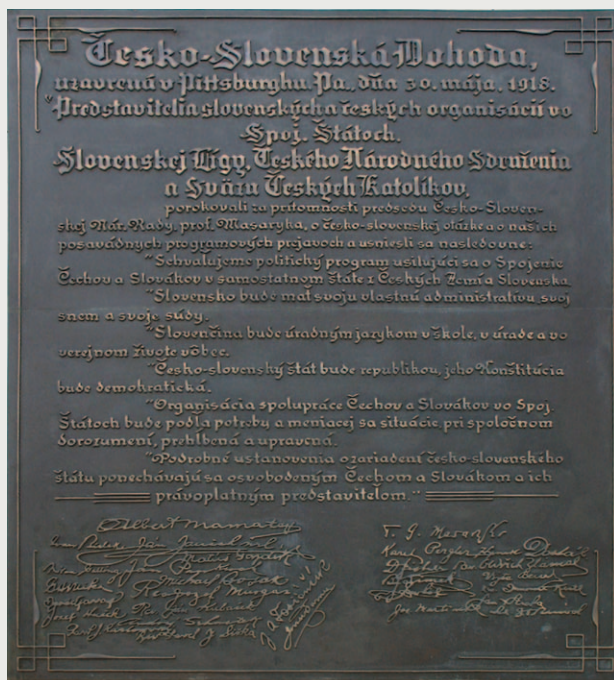 Česko-Slovenská Dohoda,
uzavrená v Pittsburghu, Pa., dňa 30. mája, 1918.
"Predstavitelia slovenských a českých organisácií vo
Spoj. Štátoch.
Slovenskej Ligy, Českého Národného Sdruženia
a Svazu Českých Katolíkov,
porokovali za prítomnosti predsedu Česko-Sloven-
skej Nár. Rady, prof. Masaryka, o česko-slovenskej otázke a o našich
posavádnych programových prejavoch a usniesli sa nasledovne:
"Schvaľujeme politický program usilujúci sa o Spojenie
Čechov a Slovákov v samostatnom štáte z Českých Zemí a Slovenska.
"Slovensko bude mať svoju vlastnú administratívu, svoj
snem a svoje súdy.
"Slovenčina bude úradným jazykom v škole, v úrade a vo
verejnom živote vôbec.
"Česko-slovenský štát bude republikou, jeho Konštitúcia
bude demokratická.
"Organisácia spolupráce Čechov a Slovákov vo Spoj.
Štátoch bude podľa potreby a meniacej sa situácie pri spoločnom
dorozumení, prehĺbená a upravená.
"Podrobné ustanovenia o zariadení česko-slovenského
štátu ponechávajú sa osvobodeným Čechom a Slovákom a ich
právoplatným predstaviteľom."
Albert Mamatey
T. G. Masaryk
Karel Pergler
Michael Bosák